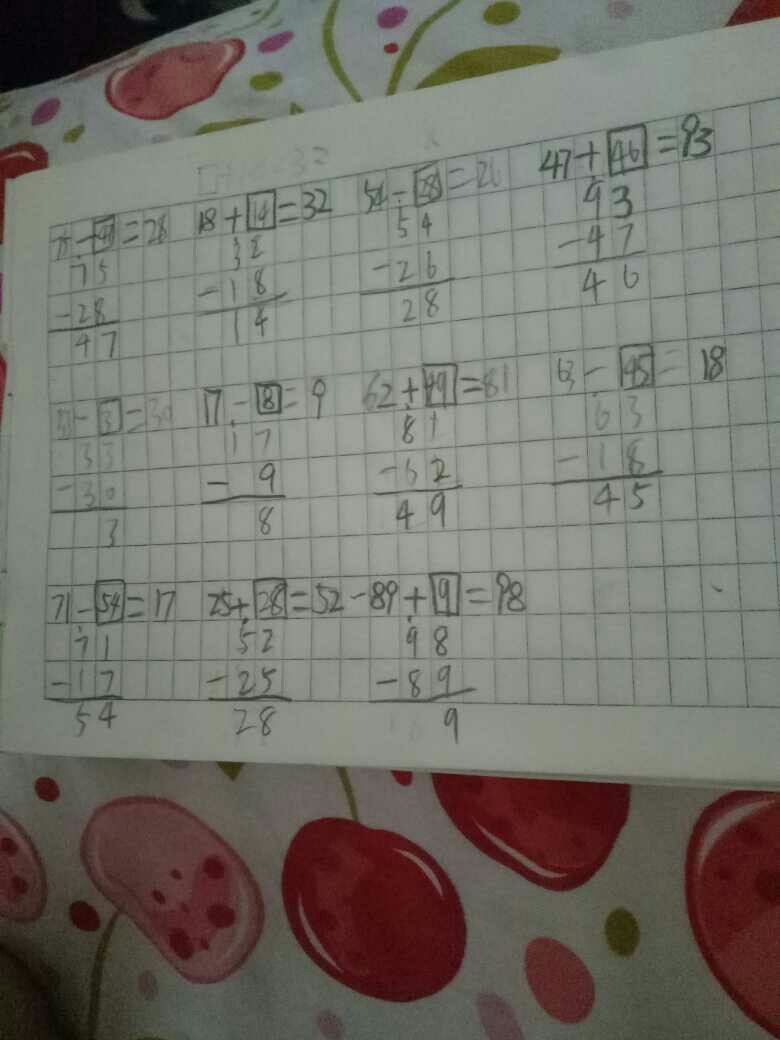 75-47=28 18+14=32 54-28=26 47+46=93
75 32 54 93
-28 -18 -26 -47
47 14 28 46
33-3=30 17-8=9 62+49=81 63-45=18
33 17 81 63
-30 -9 -62 -18
3 8 49 45
71-54=17 25+28=52 -89+9=98
71 52 98
-17 -25 -89
54 28 9